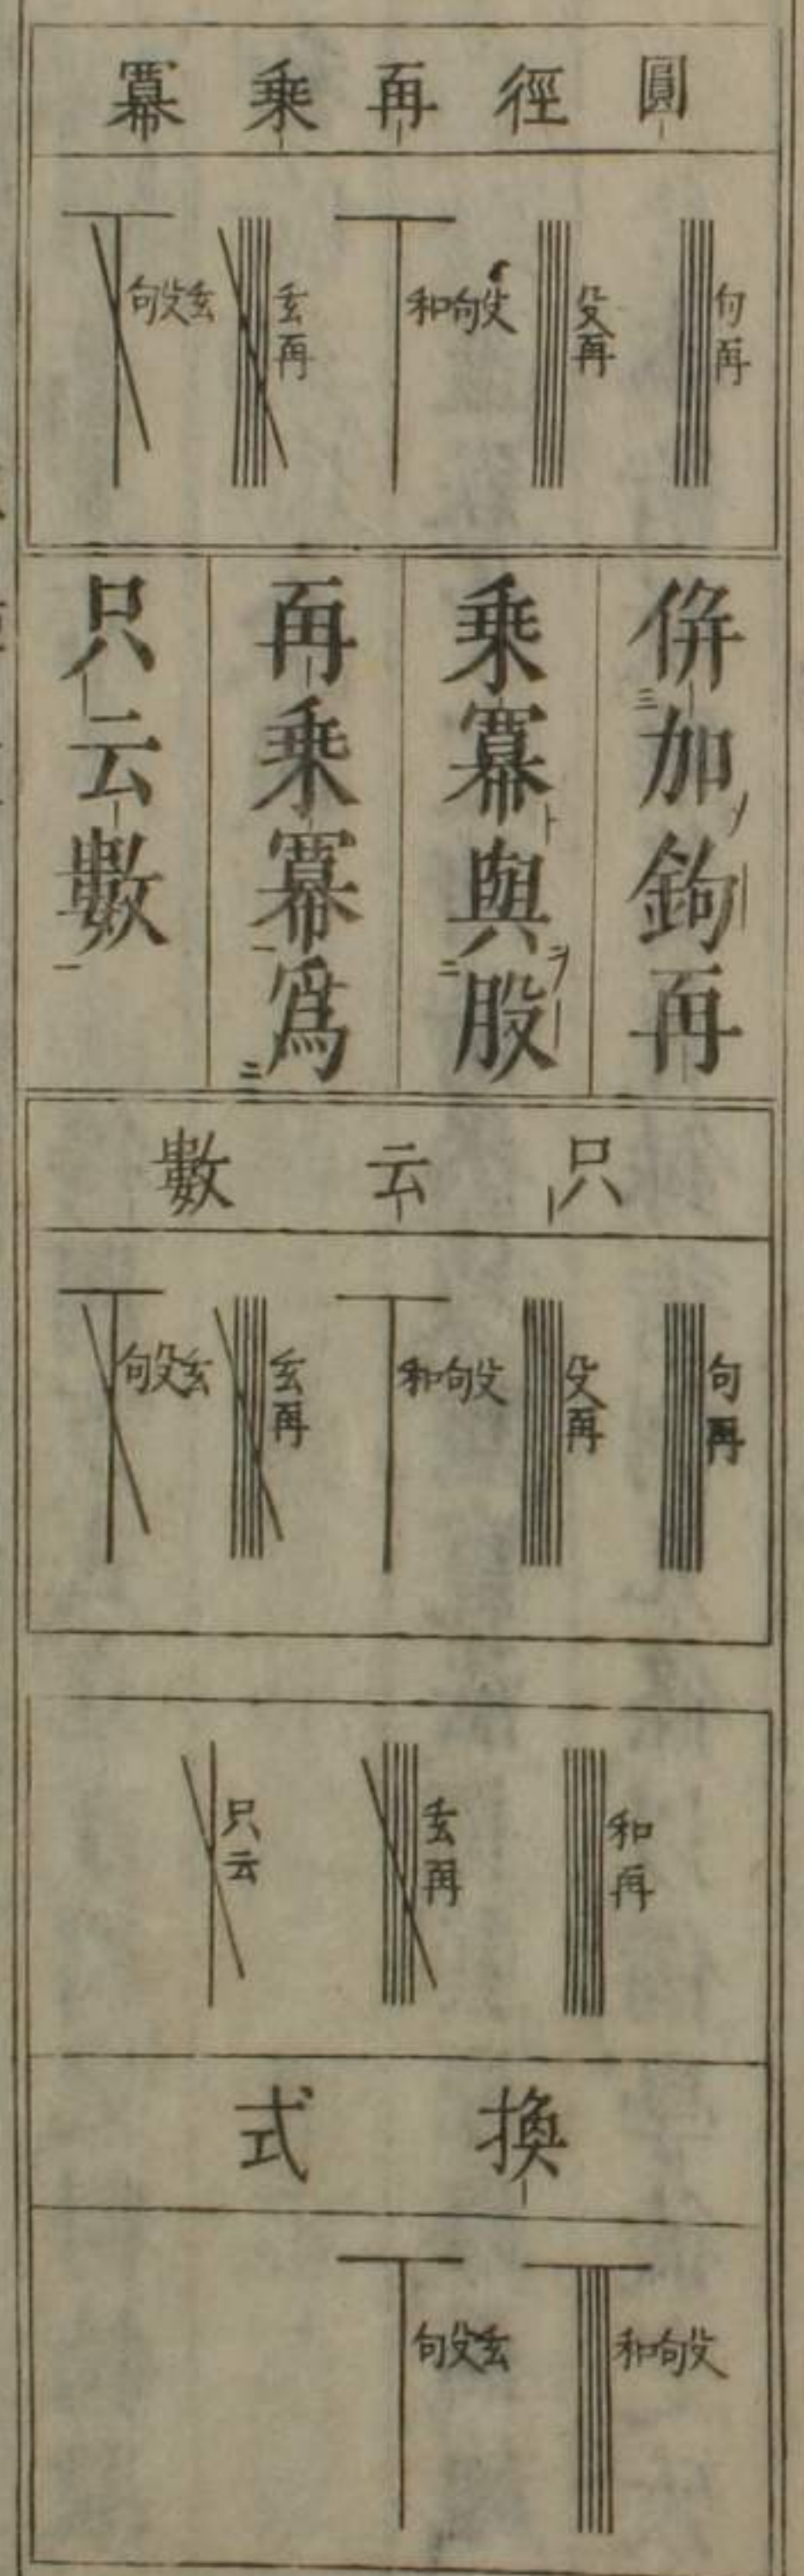 圓徑再乗冪
句再
殳再
和句殳
玄再
句殳玄
併三加ノ鉤再
乗冪ト與二股ヲ
再乗冪一爲二
只云數一
只云數
句再
殳再
和句殳
玄再
句殳玄
和再
玄再
只云
換式
和句殳
句殳玄